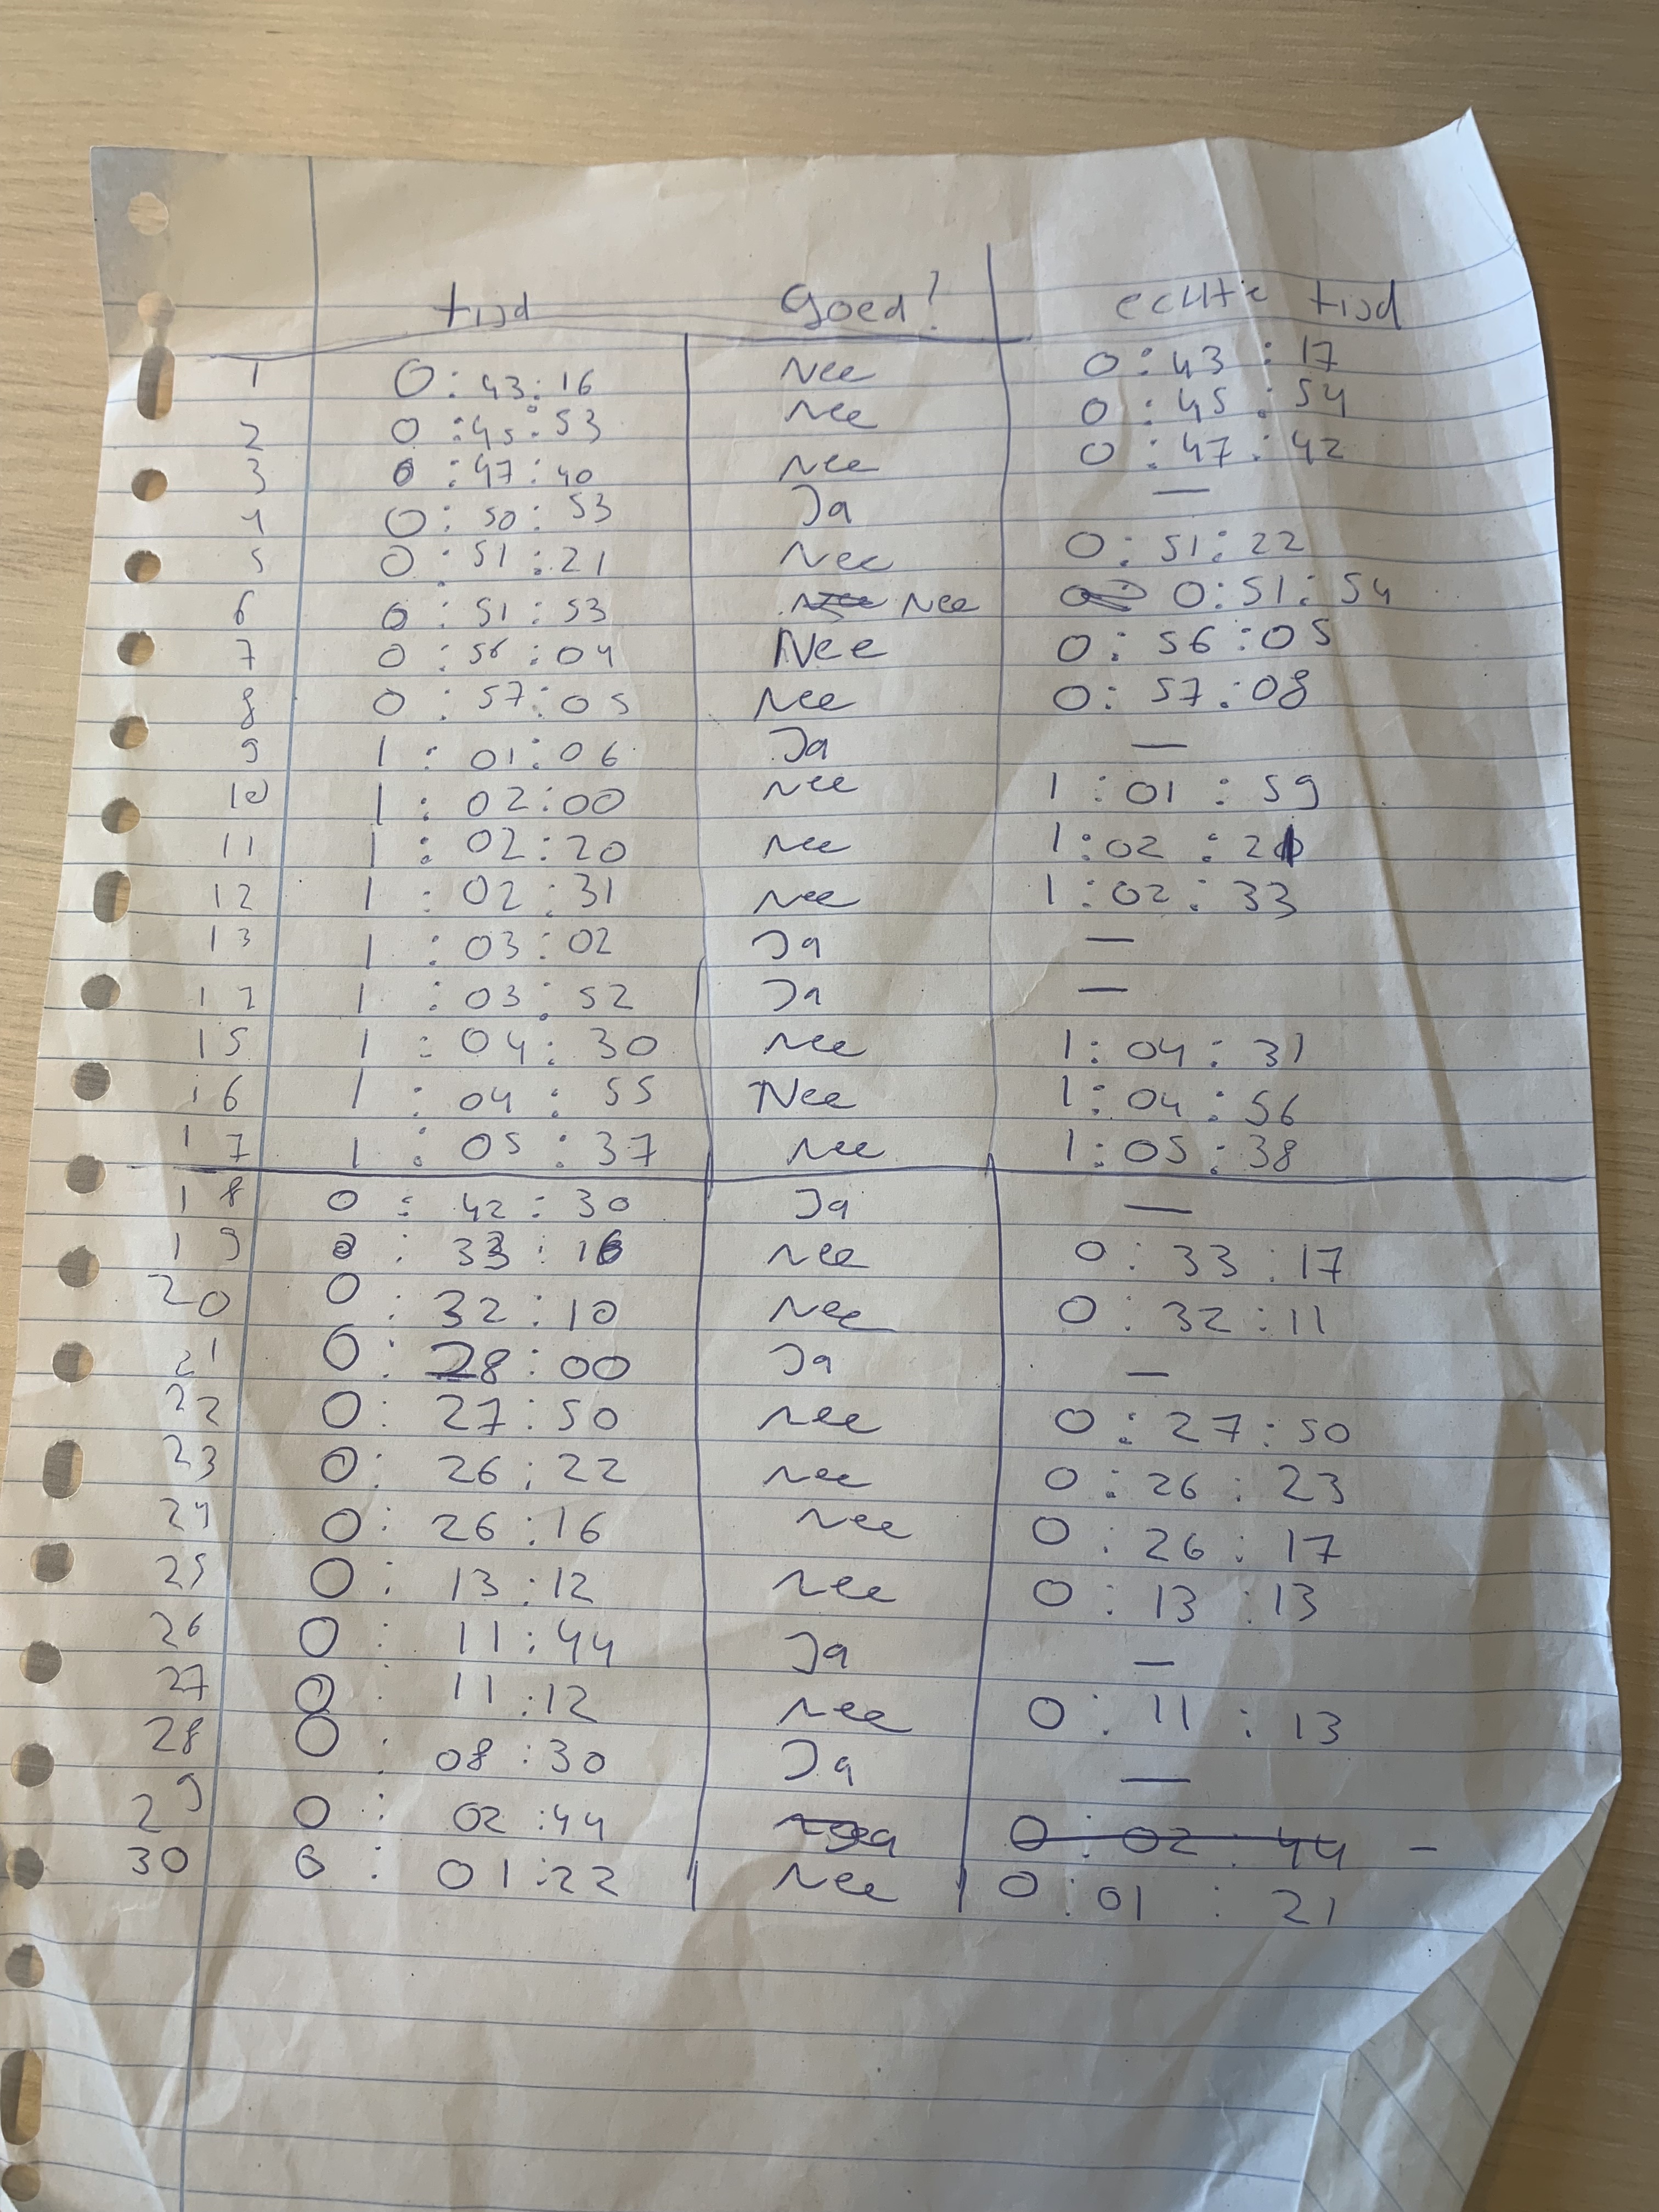 tijd Goed? echte tijd
1 0:43:16 Nee 0:43:17
2 0:45:53 Nee 0:45:54
3 0:47:40 Nee 0:47:42
4 0:50:53 Ja —
5 0:51:21 Nee 0:51:22
6 0:51:53 Nee 0:51:54
7 0:56:04 Nee 0:56:05
8 0:57:05 Nee 0:57:08
9 1:01:06 Ja —
10 1:02:00 Nee 1:01:59
11 1:02:20 Nee 1:02:21
12 1:02:31 Nee 1:02:33
13 1:03:02 Ja —
1:03:52 Ja —
15 1:04:30 Nee 1:04:31
16 1:04:55 Nee 1:04:56
17 1:05:37 Nee 1:05:38
18 0:42:30 Ja —
19 0:33:16 Nee 0:33:17
20 0:32:10 Nee 0:32:11
21 0:28:00 Ja —
22 0:27:50 Nee 0:27:50
23 0:26:22 Nee 0:26:23
24 0:26:16 Nee 0:26:17
25 0:13:12 Nee 0:13:13
26 0:11:44 Ja —
27 0:11:12 Nee 0:11:13
28 0:08:30 Ja —
29 0:02:44 Ja 0:02:44 –
30 0:01:22 Nee 0:01:21